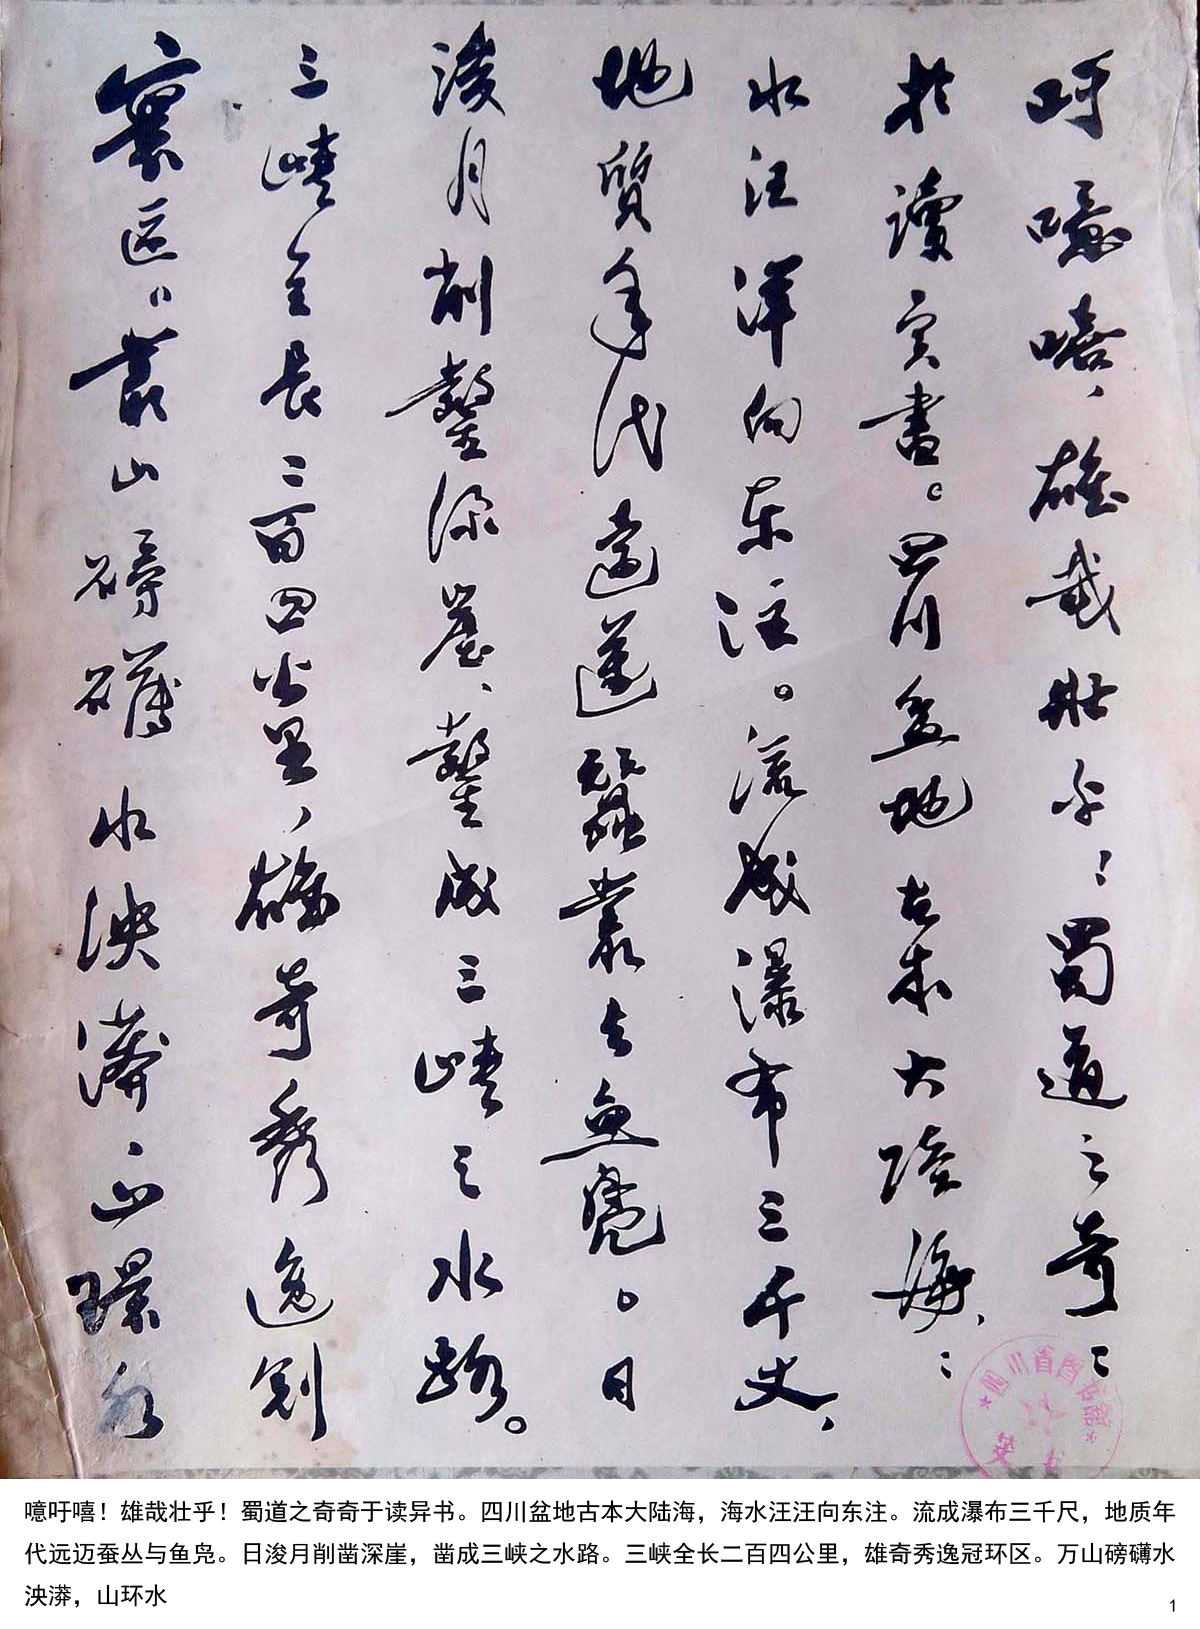 吁噫嘻、雄哉壯乎！蜀道之奇〻
於讀异書。四川盆地古本大陸海、〻
水汪洋向东注。流成瀑布三千丈、
地質年代遠邁蠶叢与魚凫。日
浚月削鑿深崖、鑿成三峡之水路。
三峡全长二百四公里、雄奇秀逸冠
寰区。叢山磅礴水泱漭、山環水
四川省图书馆
噫吁嘻！雄哉壮乎！蜀道之奇奇于读异书。四川盆地古本大陆海，海水汪汪向东注。流成瀑布三千尺，地质年
代远迈蚕丛与鱼凫。日浚月削凿深崖，凿成三峡之水路。三峡全长二百四公里，雄奇秀逸冠环区。万山磅礴水
泱漭，山环水
1